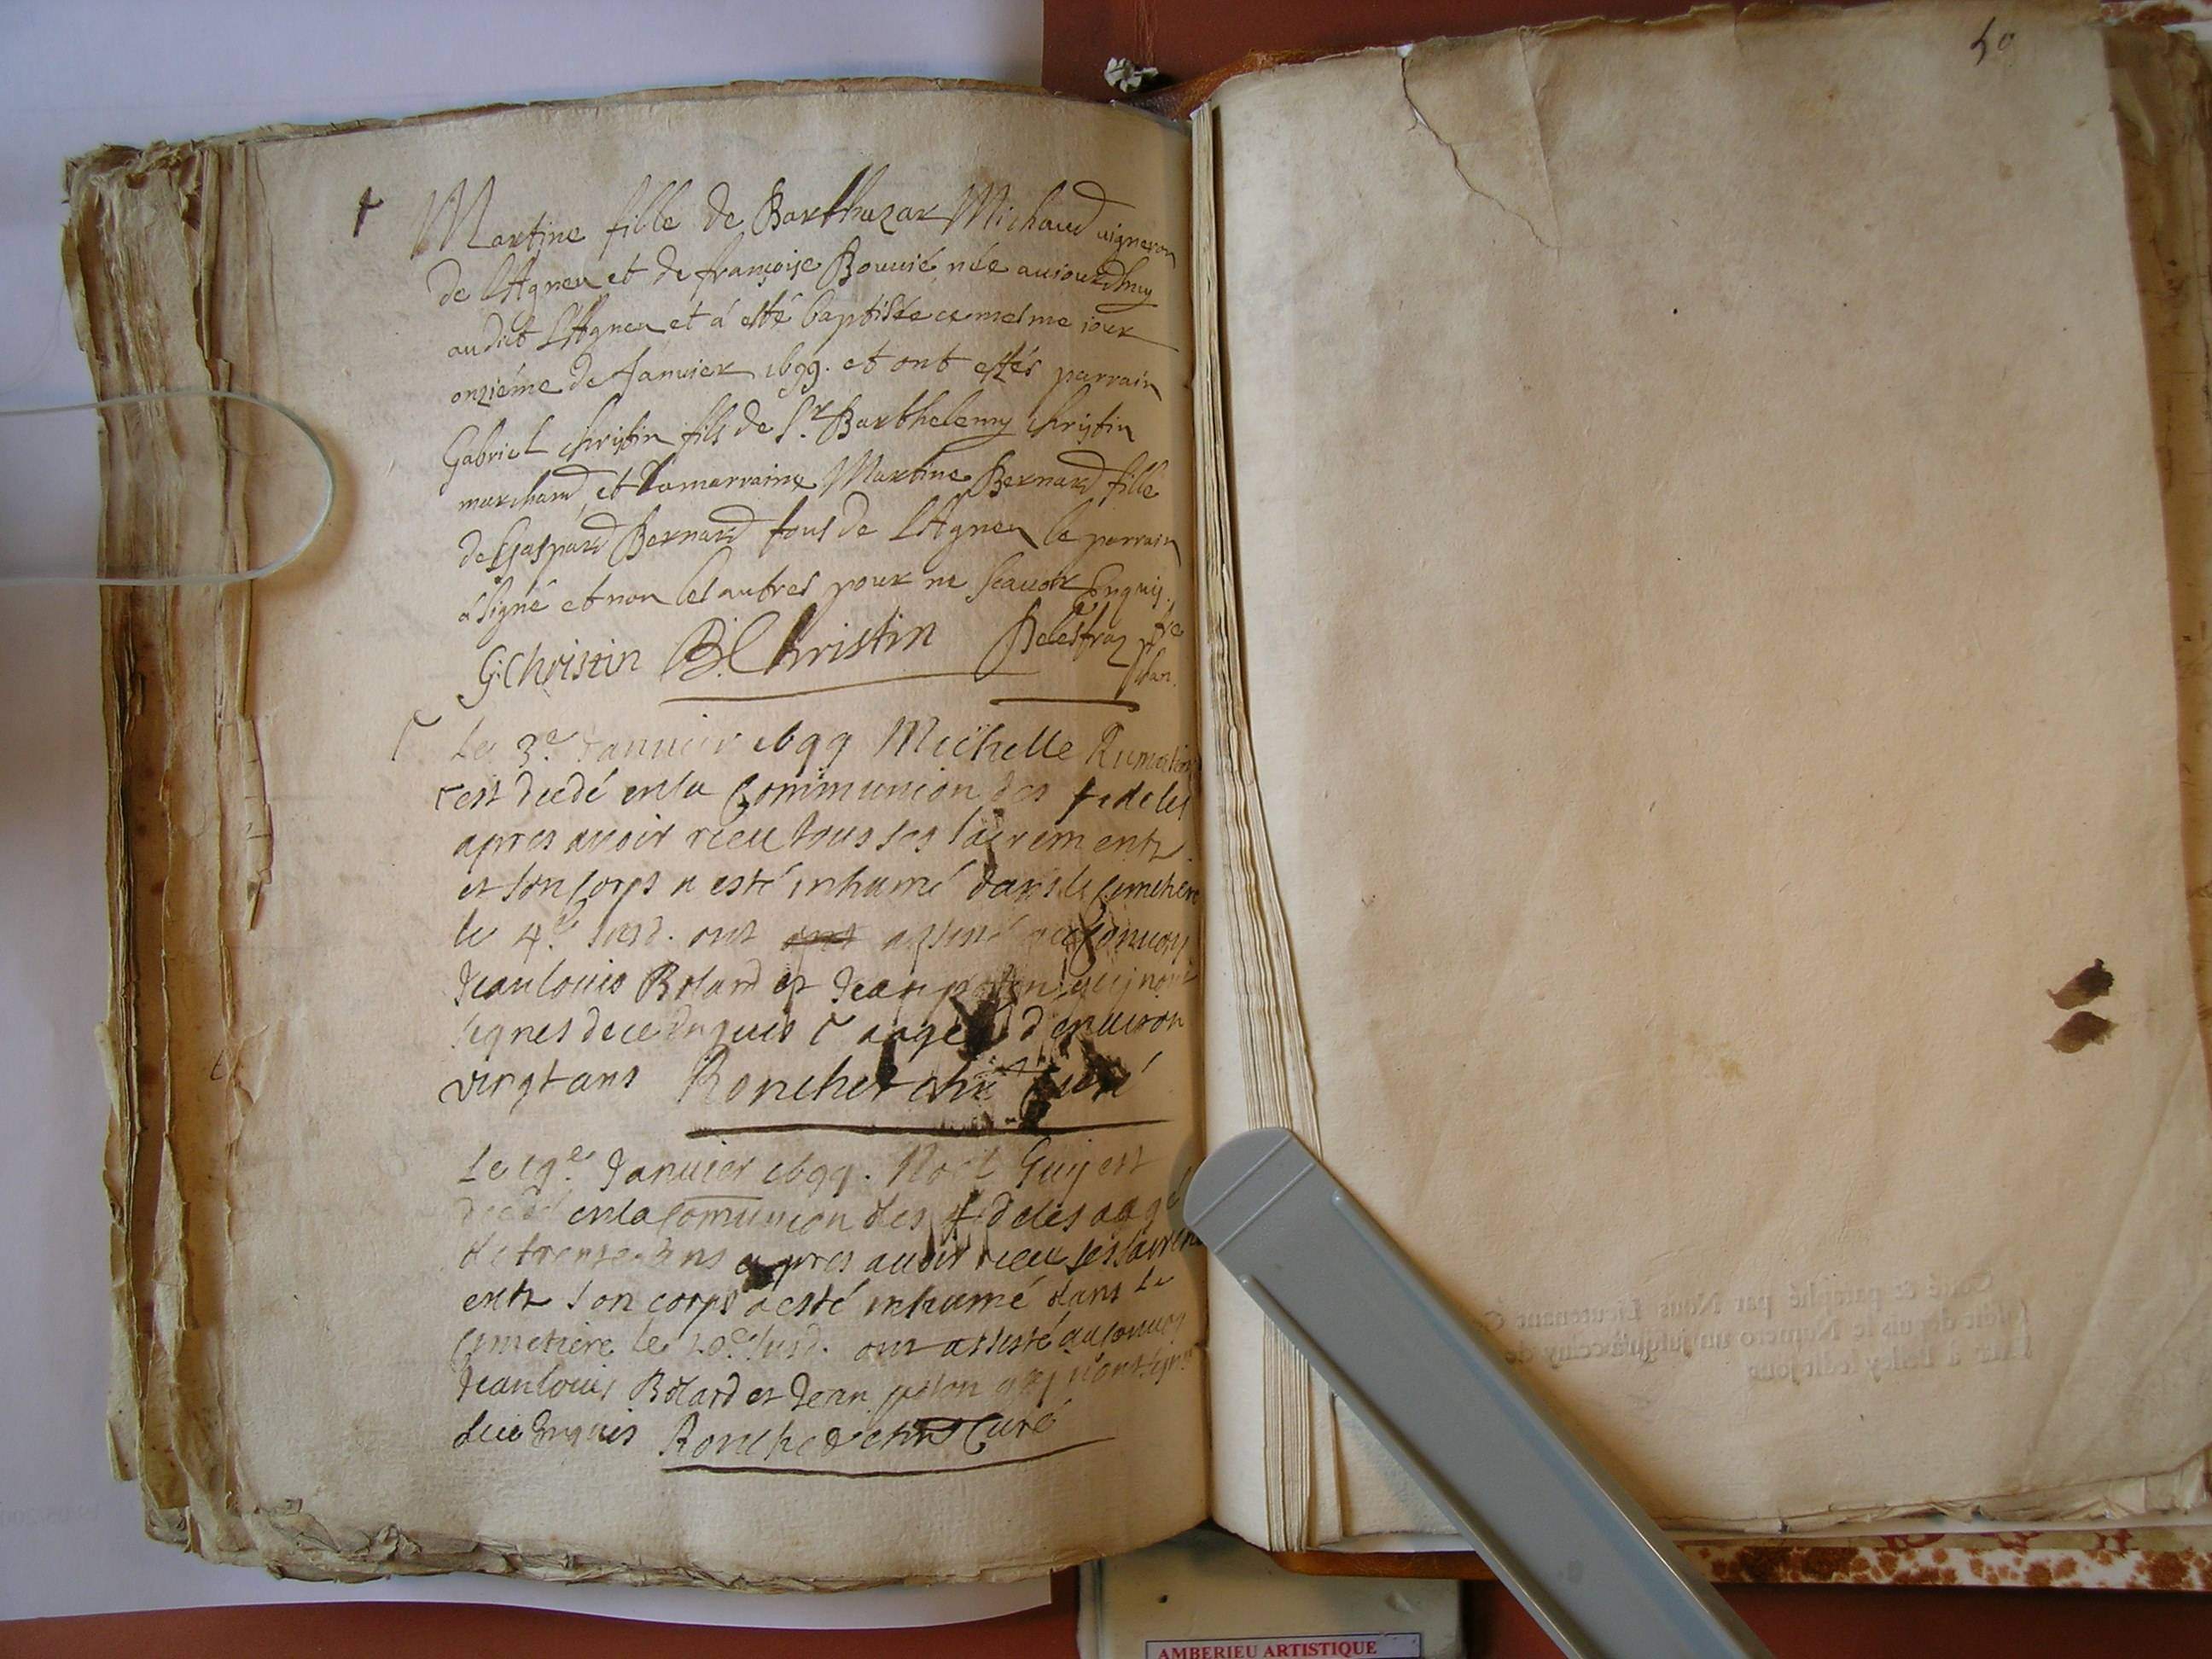 Martine fille de Barthazar Michaud vigneron
de l'Agneu et de françoise Bouuié née auiourdhuy
audict l'Agneu et à esté baptisée ce mesme iour
onziéme de Januier 1699. et ont estés parrain
Gabriel christin fils de Sr Barthelemy christin
marchand, et la marraine Martine Bernard fille
de Gaspard Bernard tous de l'Agneu le parrain
a signé et non les autres pour ne scauoir Enquis.
G: Christin B: Christin Delestraz
Le 3e Januier 1699 Michelle
est decdé en la Communion des fideles
apres avoir receu tous ses sacrements
et son corps a esté inhumé dans le
le 4e susd. ont assisté au conuoy
Jean louis Bolard et Jean
signes de ce Enquis aagé d'enuiron
vingt ans Ronchet curé
Le 19e Januier 1699. Noel Guy est
decdé en la comunion des fideles aagé
de trense ans apres auoir receu ses sacrem
ents son corps a esté inhumé dans le
cymetiere le 20e susd. ont assisté au conuoy
Jean louis Bolard et Jean
de ce Enquis Ronchet curé
Cotté & paraphé par Nous Lieutenant
depuis le Numero un jusqu'à
ledit jour
AMBERIEU ARTISTIQUE